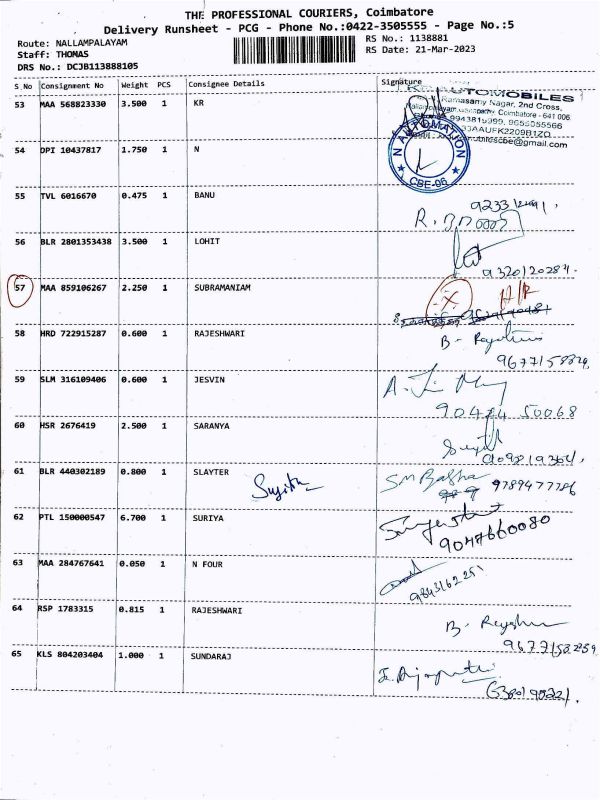 THE PROFESSIONAL COURIERS, Coimbatore
Delivery Runsheet - PCG - Phone No.:0422-3505555 - Page No.:5
Route: NALLAMPALAYAM RS No.: 1138881
Staff: THOMAS RS Date: 21-Mar-2023
DRS No.: DCJB113888105
S.No Consignment No Weight PCS Consignee Details Signature
53 MAA 568823330 3.500 1 KR
AUTOMOBILES
Ramasamy Nagar, 2nd Cross,
Coimbatore - 641 006
33AAUFK2209B1ZO
N AUTOMATION
CBE-06
54 DPI 10437817 1.750 1 N
55 TVL 6016670 0.475 1 BANU
56 BLR 2801353438 3.500 1 LOHIT
57 MAA 859106267 2.250 1 SUBRAMANIAM
58 HRD 722915287 0.600 1 RAJESHWARI
59 SLM 316109406 0.600 1 JESVIN
90474 50068
60 HSR 2676419 2.500 1 SARANYA
61 BLR 440302189 0.800 1 SLAYTER
SM Basha 9789477786
62 PTL 150000547 6.700 1 SURIYA
9047660080
63 MAA 284767641 0.050 1 N FOUR
9843162251
64 RSP 1783315 0.815 1 RAJESHWARI
65 KLS 804203404 1.000 1 SUNDARAJ